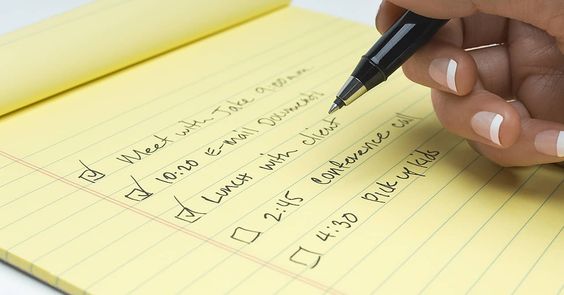 Meet with Jake 9:00 am
10:20 E-mail Documents
Lunch with client
2:45 Conference call
4:30 Pick-up kids